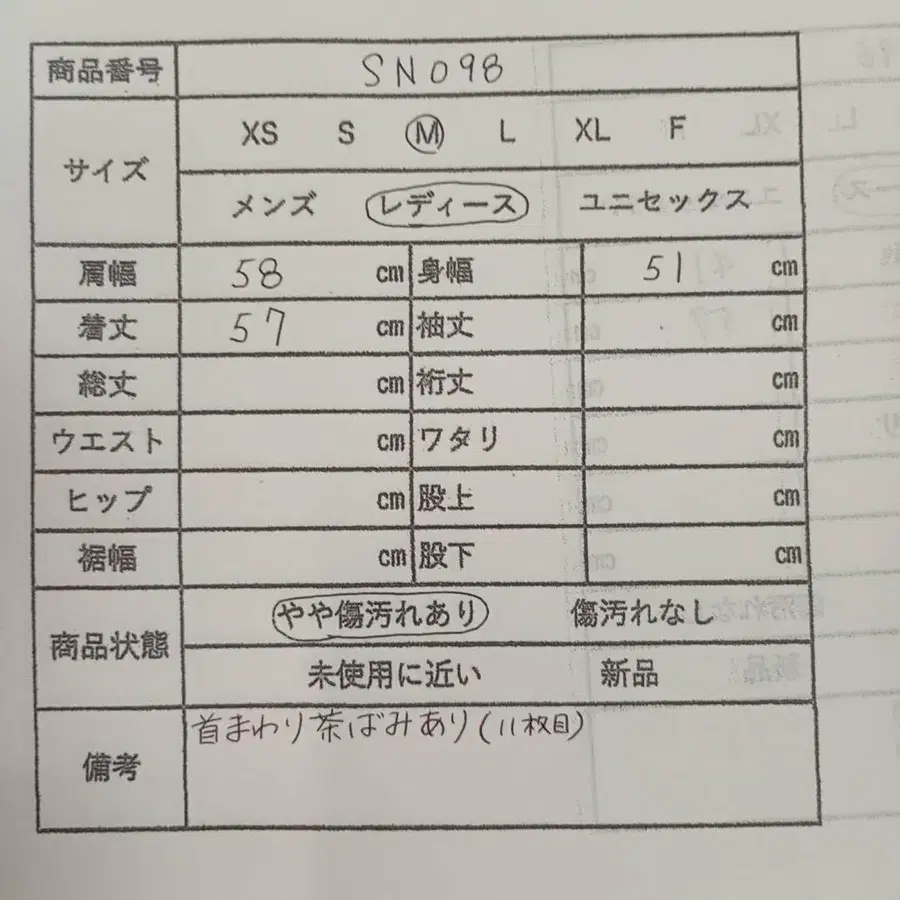 商品番号 SN098
サイズ XS S M L XL F
メンズ レディース ユニセックス
肩幅 58 cm 身幅 51 cm
着丈 57 cm 袖丈 cm
総丈 cm 裄丈 cm
ウエスト cm ワタリ cm
ヒップ cm 股上 cm
裾幅 cm 股下 cm
商品状態 やや傷汚れあり 傷汚れなし
未使用に近い 新品
備考 首まわり茶ばみあり(11枚目)